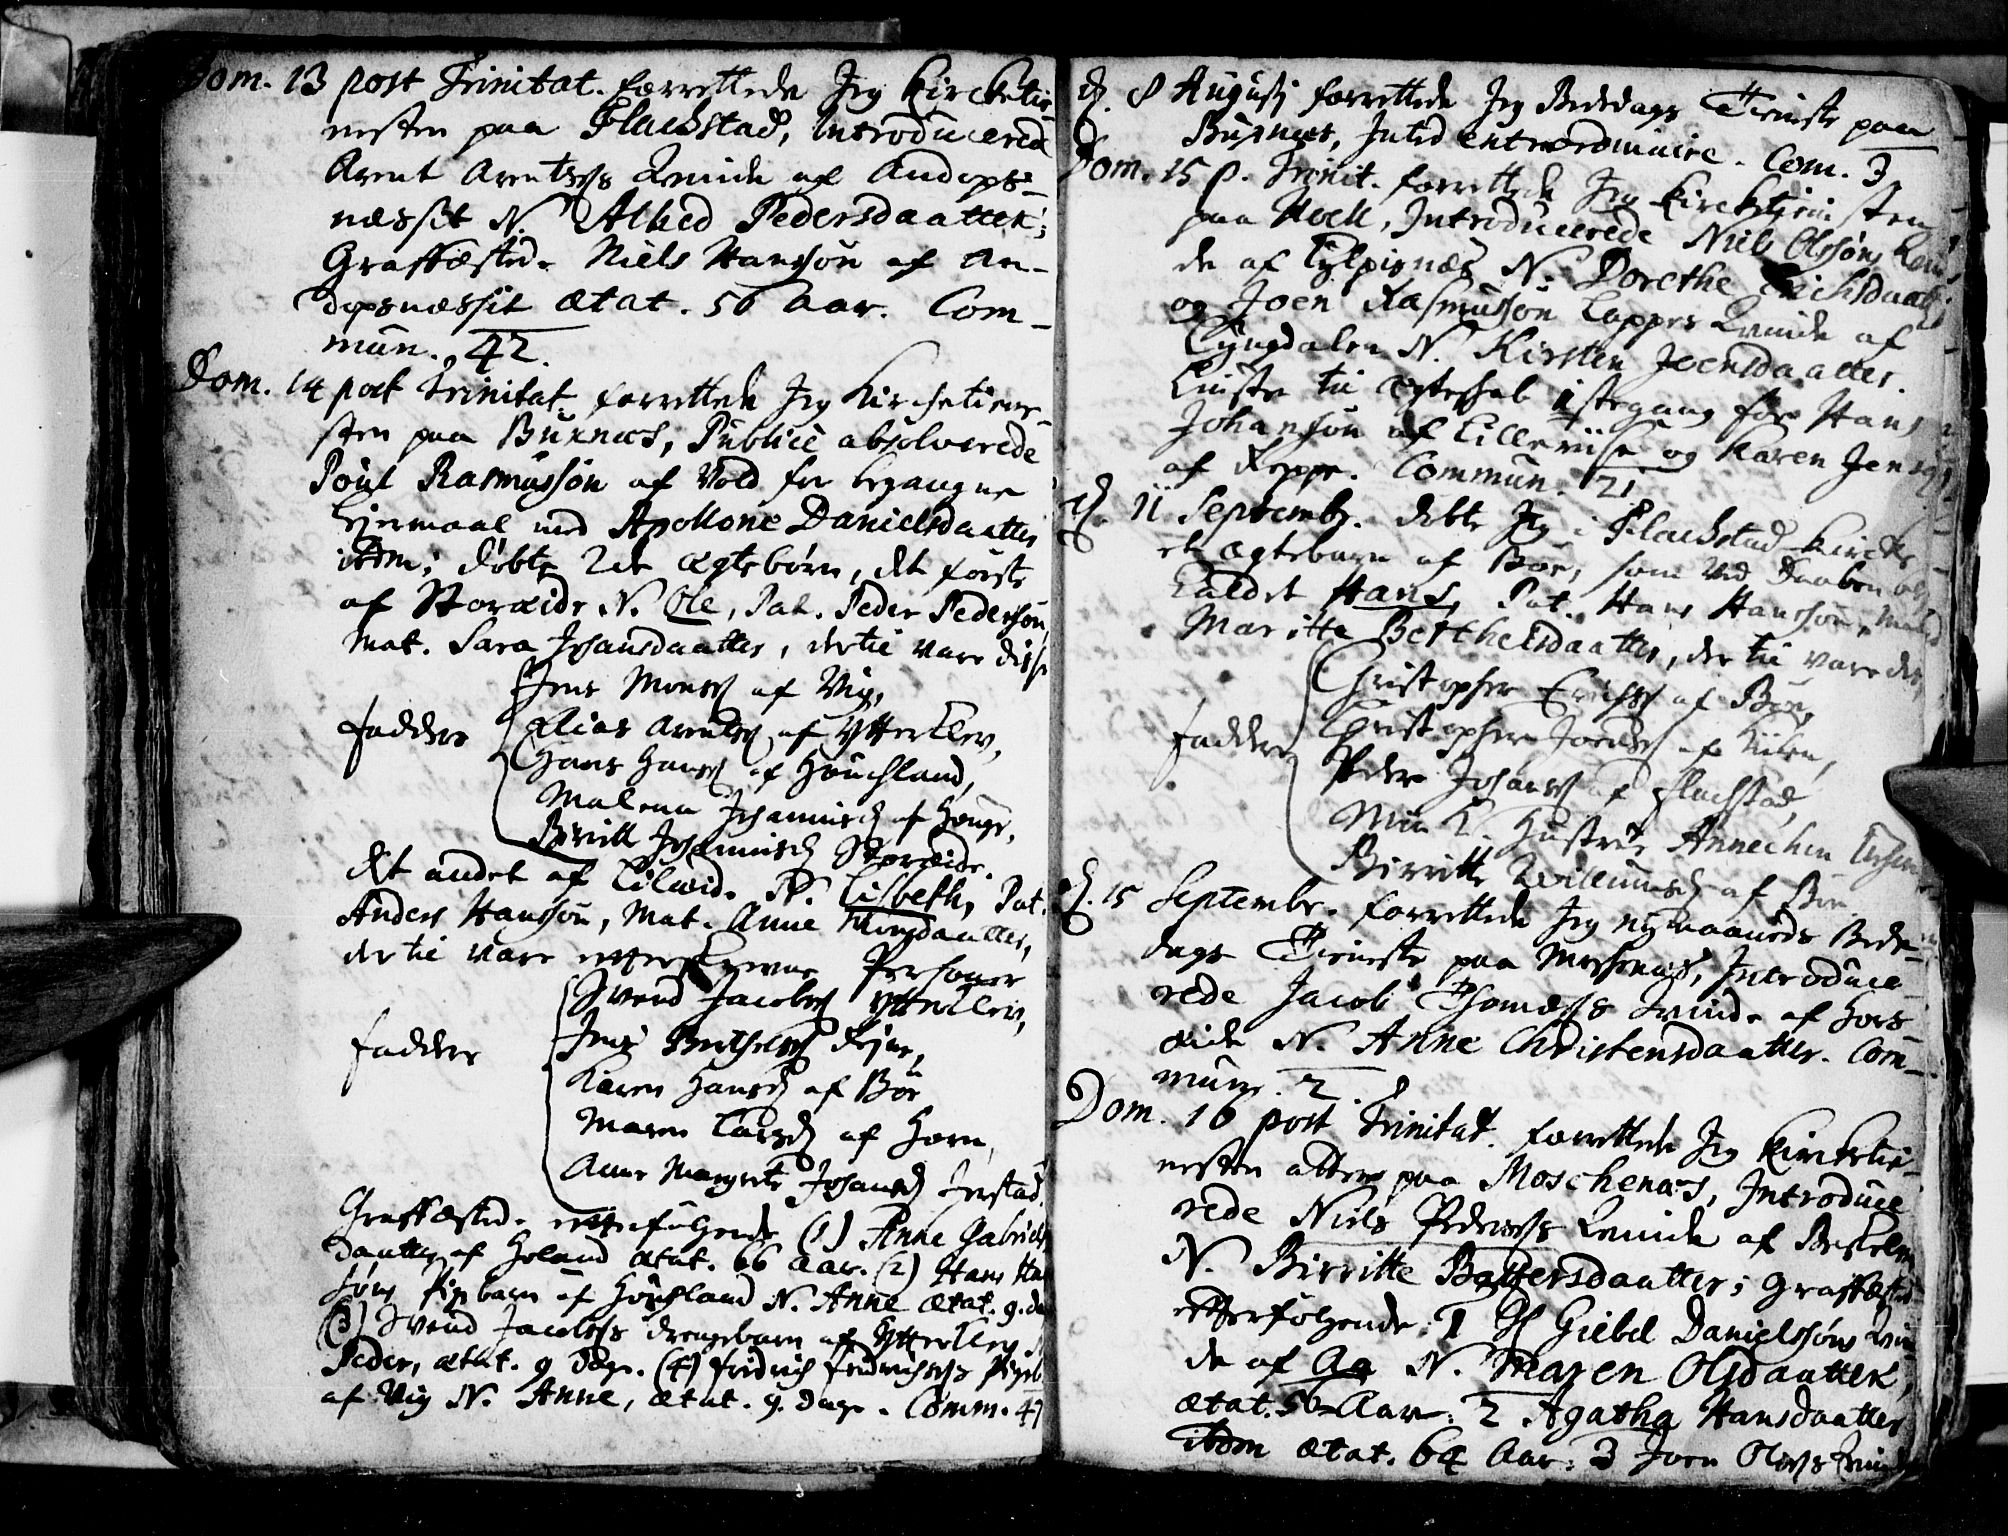 Dom. 13 post Trinitat. forrettede Jeg Kircketie
nesten paa Flackstad, Introducered
Arent Arentsøs Qvinde af Andops-
næsset N. Alhed Pedersdaatter;
Graffæsted. Niels Hansøn af An-
dopsnæssit ætat. 56 Aar. Com-
mun. 42.
Dom. 14 post Trinitat. forrettede Jeg Kircketiene
sten paa Buxnæs, Publicè absolverede
Poul Rasmussøn af Vold for begangne
Leiermaal med Apollone Danielsdaatter
ibdm; døbte 2de ægtebørn, det første
af Storeide N. Ole, Pat. Peder Pedersøn
Mat. Sara Johansdaatter, dertil vare disse
Jens Monss af Vig,
faddere Elias Arentss af Ytterklev,
Hans Hanss af Houchland,
Malena Johannisd af Houge,
Birrit Johannisd Storeide.
det andet af Lilleid. N. Lisbeth, Pat.
Anders Hanssøn, Mat. Anne Mogsdaatter,
dertil vare effterskrevne Personer
Svend Jacobss Ytterklev,
faddere Jens Berthelss
Karen Hansd af Böe
Maren Larsd af Horn,
Anne Margrete Johansd Jerstad.
Graffæsted. effterfølgende (1) Anne Gabriels
daatter af Holand ætat. 66 Aar. (2) Hans Han
søns Pigebarn af Houchland N. Anne ætat. 9. da
(3) Svend Jacobsøs drengebarn af Ytterklev
Peder, ætat. 9 Dage. (4) fridrich fredrichsøs Pigeb
af Vig N. Anne, ætat. 9. dage. Comm. 47
d. 8 Augusti forrettede Jeg Bededags Tieniste paa
Buxnæs, Intet extraordinaire. Com. 3
Dom. 15 p. Trinit. forrettede Jeg Kircketieni sten
paa Hoell, Introducerede Niels Olsøns Qvin
de af N. Dorethe Erichsdaatt
og Joen Rasmussøn Lappes Qvinde af
Lyngdalen N. Kirsten Joensdaatter.
Liuste til ægteskab 1ste gang for Hans
Johansøn af Lille og Karen Jens
af Reppe. Commun. 21
d. 11 Septembr. døbte Jeg i Flackstad Kircke
et ægtebarn af Böe, som ved Daaben ble
kaldet Hans, Pat. Hans Hansøn, Mat
Maritte Berthelsdaatter, der til vare de
Christopher Erichss af Böe,
Christopher Joenss af Kilen,
faddere Peder Johanss af Flackstad,
Min K. Hustrue Annechin
Birritte Willumsd af Böe
d. 15 Septembr. forrettede Jeg nymaaneds Bede-
dags Tieniste paa Moschenæs, Introduce-
rede Jacob Thomæsøs Qvinde af Hors
eide N. Anne Christensdaatter. Com-
mun. 2.
Dom. 16 post Trinitat. forrettede Jeg Kircketie-
nesten atter paa Moschenæs, Introduce
rede Niels Pedersøs Qvinde af
N. Birritte Baltzersdaatter; Graffæsted
effterfølgende. 1 Giebel Danielssøns Qvin
de af Aa N. Maren Olsdaatter,
ætat. 50 Aar. 2 Agatha Hansdaatter
ibdm ætat. 64 Aar. 3 Joen Olsøs Qvinde